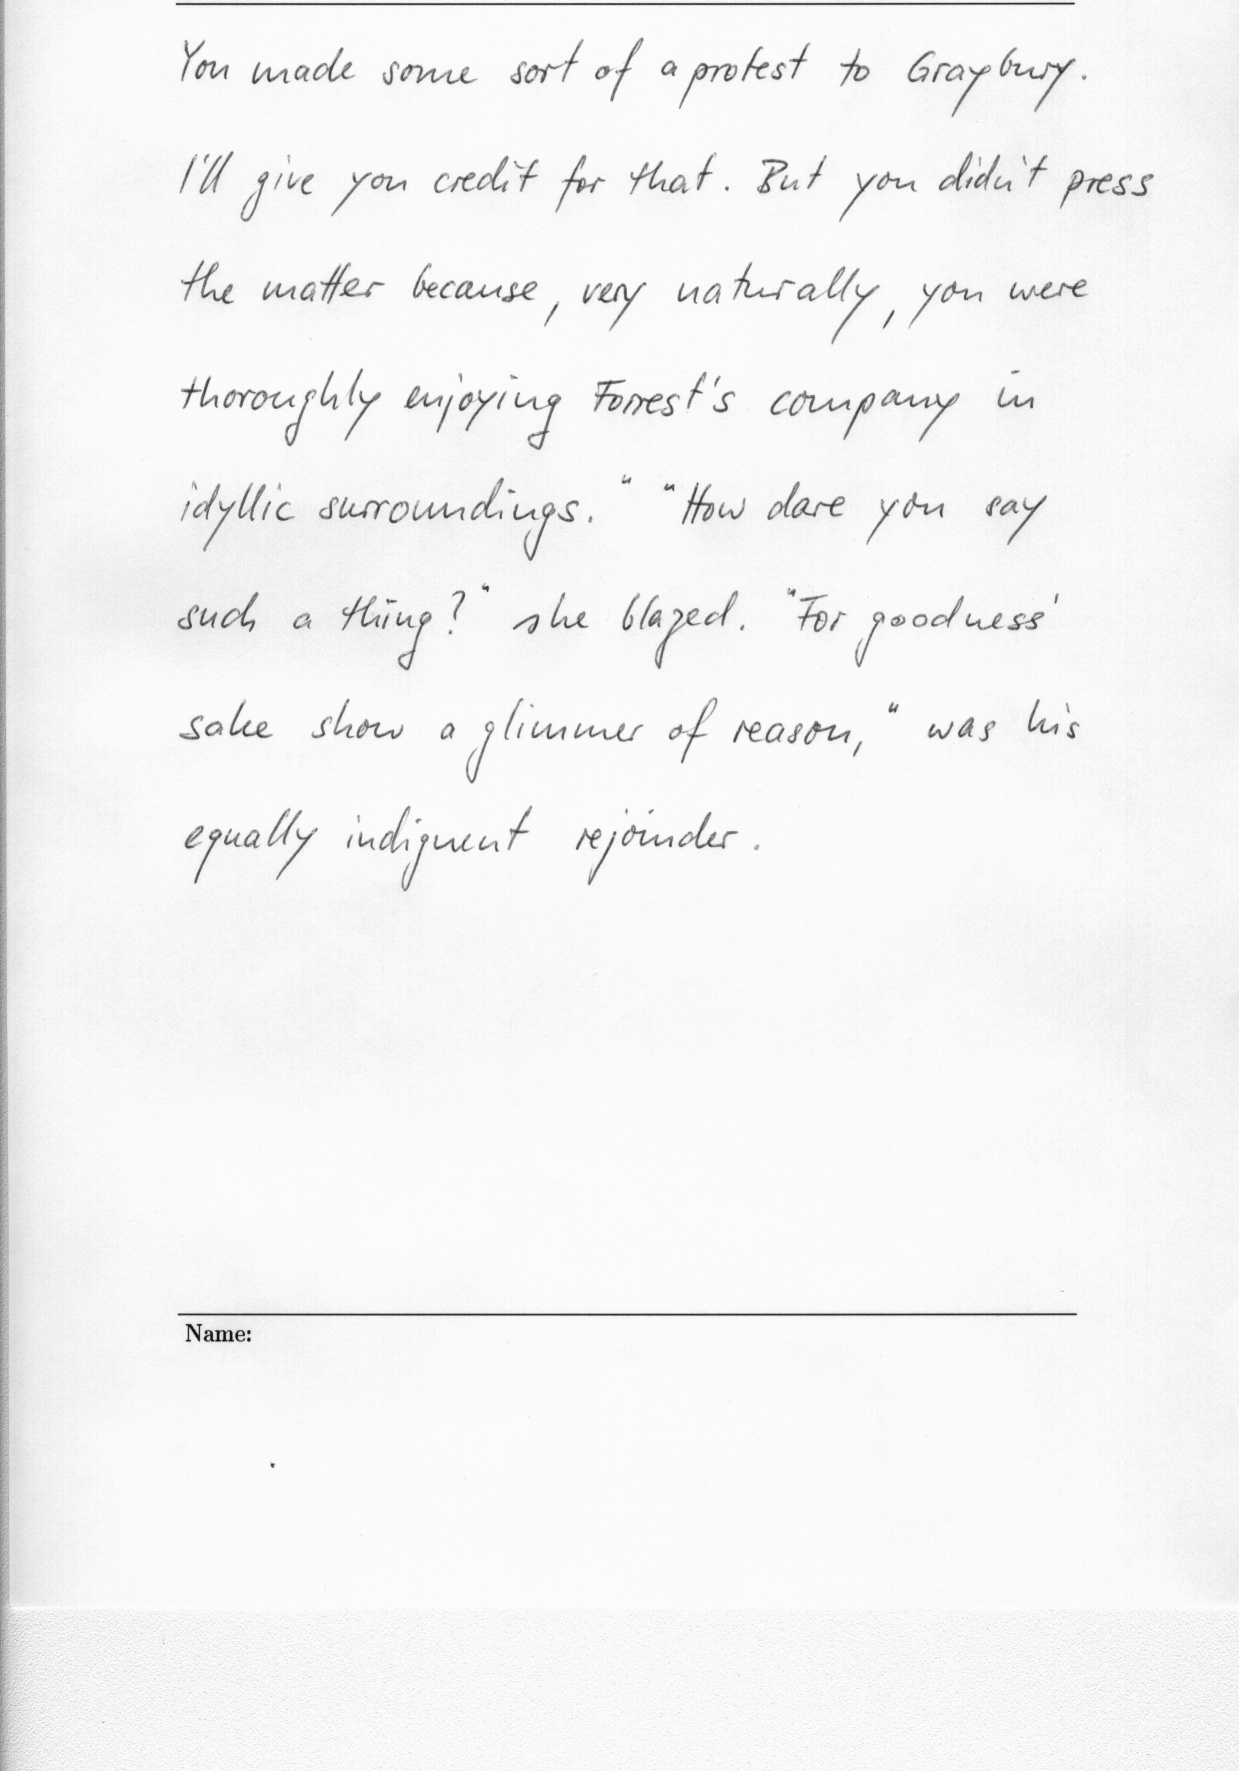 You made some sort of a protest to Graybury.
I'll give you credit for that. But you didn't press
the matter because, very naturally, you were
thoroughly enjoying Forrest's company in
idyllic surroundings." "How dare you say
such a thing?" she blazed. "For goodness'
sake show a glimmer of reason," was his
equally indignent rejoinder.
Name: